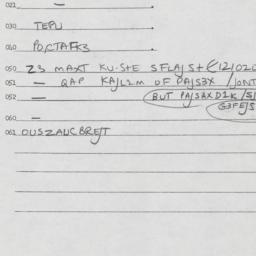 022 —
030 TEPU
040 PO,CTAFK3
050 Z3 MAXT KU·STE SFLAJST (12,020
051 — QAP KAJLZM OF PAJSBX / JONT
052 — BUT PAJSAXD1K /S/
G3FEJS
060 —
062 OUSZAUCBREJT